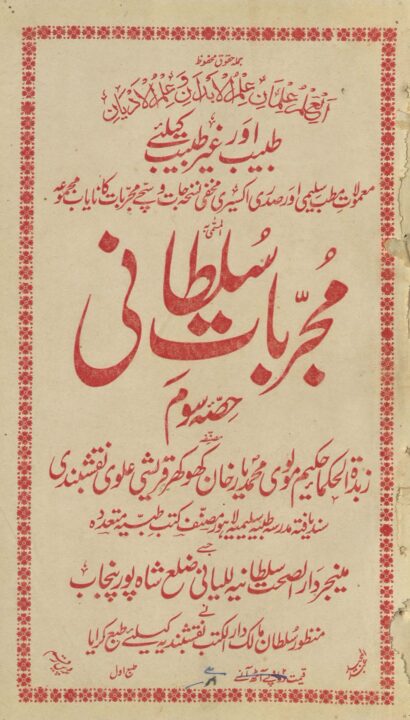 جملہ حقوق محفوظ
العلم علمان علم الابدان و علم الادیان
طبیب اور غیر طبیب کیلئے
معمولات مطب سلیمی اور صدری اکسیری مخفی نسخہ جات و سچے مجربات کا نایاب مجموعہ
المسمیٰ بہ
مجربات سُلطانی
حصّہ سوم
مصنفہ
زبدۃ الحکما حکیم مولوی محمد یار خان کھوکھر قریشی علوی نقشبندی
سند یافتہ مدرسہ طبیہ سلیمیہ لاہور مصنف کتب طبیہ متعددہ
جسے
مینجر دار الصحت سلطانیہ للیانی ضلع شاہ پور پنجاب
نے
منظور سلطان مالک دار الکتب نقشبندیہ کیلئے طبع کرایا
طبع اول
قیمت